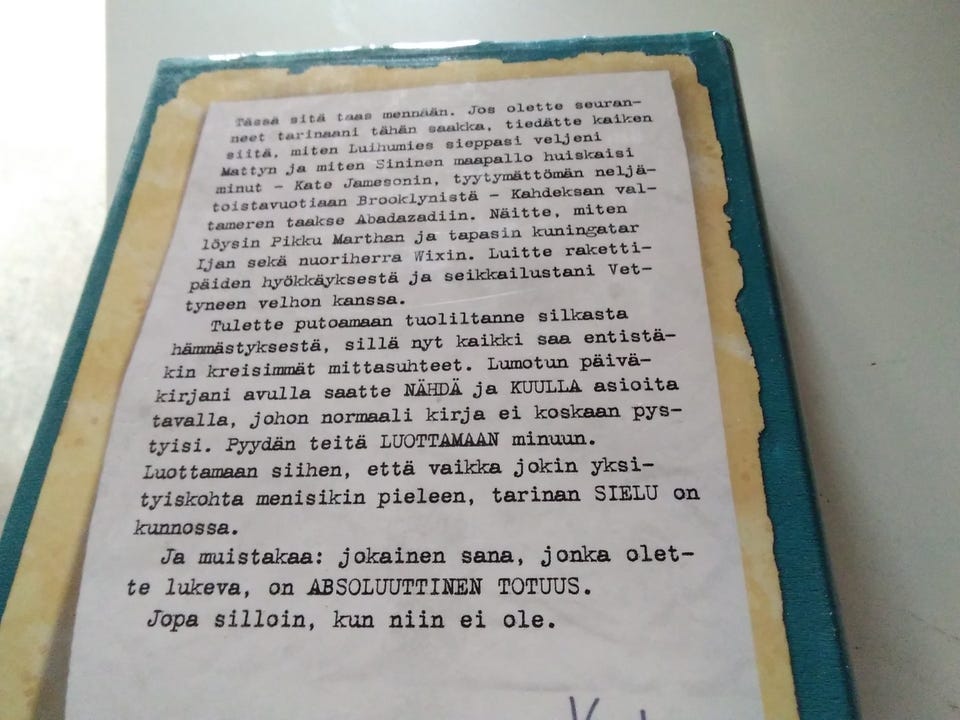 Tässä sitä taas mennään. Jos olette seuran-
neet tarinaani tähän saakka, tiedätte kaiken
siitä, miten Luihumies sieppasi veljeni
Mattyn ja miten Sininen maapallo huiskaisi
minut - Kate Jamesonin, tyytymättömän neljä-
toistavuotiaan Brooklynistä - Kahdeksan val-
tameren taakse Abadazadiin. Näitte, miten
löysin Pikku Marthan ja tapasin kuningatar
Ijan sekä nuoriherra Wixin. Luitte raketti-
päiden hyökkäyksestä ja seikkailustani Vet-
tyneen velhon kanssa.
Tulette putoamaan tuoliltanne silkasta
hämmästyksestä, sillä nyt kaikki saa entistä-
kin kreisimmät mittasuhteet. Lumotun päivä-
kirjani avulla saatte NÄHDÄ ja KUULLA asioita
tavalla, johon normaali kirja ei koskaan pys-
tyisi. Pyydän teitä LUOTTAMAAN minuun.
Luottamaan siihen, että vaikka jokin yksi-
tyiskohta menisikin pieleen, tarinan SIELU on
kunnossa.
Ja muistakaa: jokainen sana, jonka olet-
te lukeva, on ABSOLUUTTINEN TOTUUS.
Jopa silloin, kun niin ei ole.